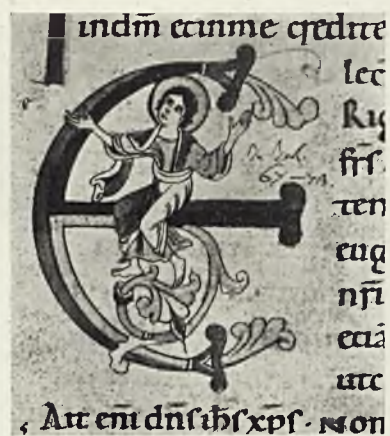 indm̄ et inme credite
lec
Rig
frſ
ten
eug
nr̄i
etiā
utc
Ait eni dn̄ſ ih̄ſ xpſ · Non